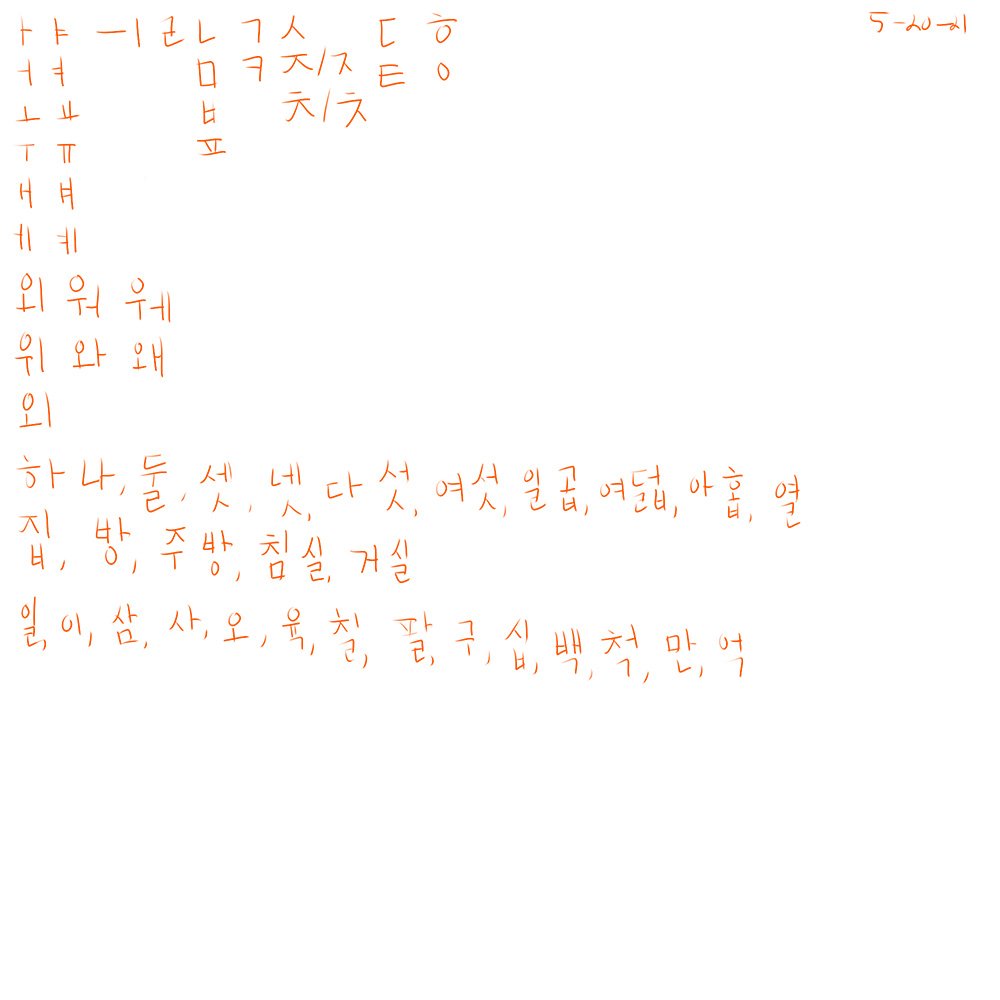 ㅏ ㅑ ㅡ ㅣ ㄹ ㄴ ㄱ ㅅ ㄷ ㅎ 5-20-21
ㅓ ㅕ ㅁ ㅋ ㅈ/ㅈ ㅌ ㅇ
ㅗ ㅛ ㅂ ㅊ/ㅊ
ㅜ ㅠ ㅍ
ㅐ ㅒ
ㅔ ㅖ
외 워 웨
위 와 왜
외
하나, 둘, 셋, 넷, 다섯, 여섯, 일곱, 여덟, 아홉, 열
집, 방, 주방, 침실, 거실
일, 이, 삼, 사, 오, 육, 칠, 팔, 구, 십, 백, 척, 만, 억